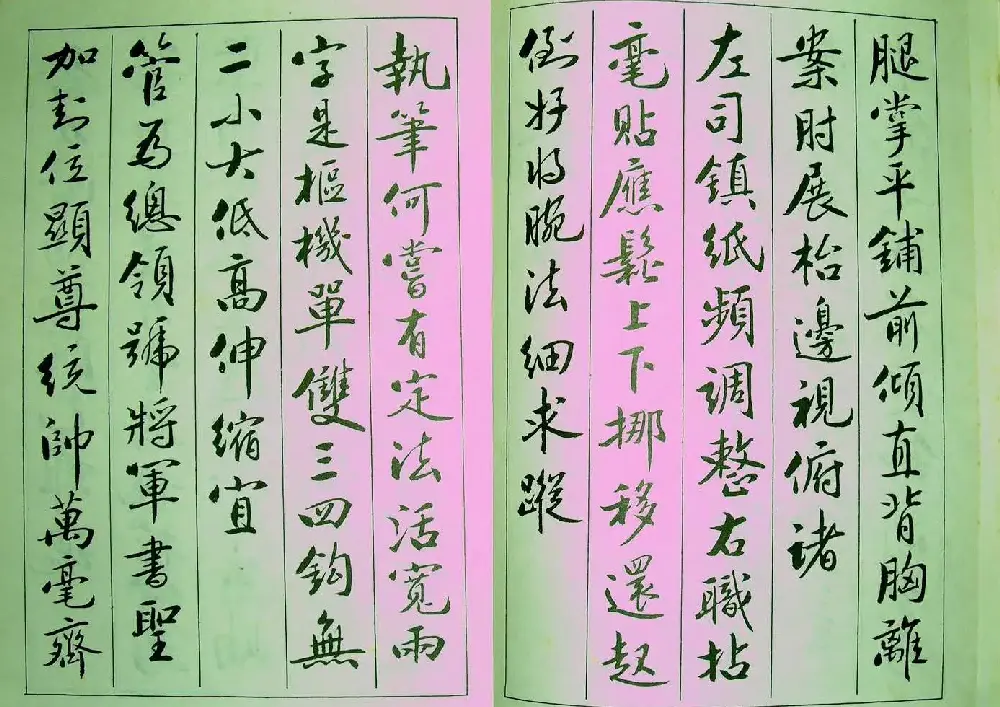 腿掌平鋪前傾直背胸離
案肘展枱邊視俯诸
左司鎮紙頻調整右職拈
毫貼應鬆上下挪移還起
倒好将腕法细求蹤
執筆何嘗有定法活寬兩
字是樞機單雙三四鈎無
二小大低高伸縮宜
管為總領號將軍書聖
加封位顯尊統帥萬毫齊